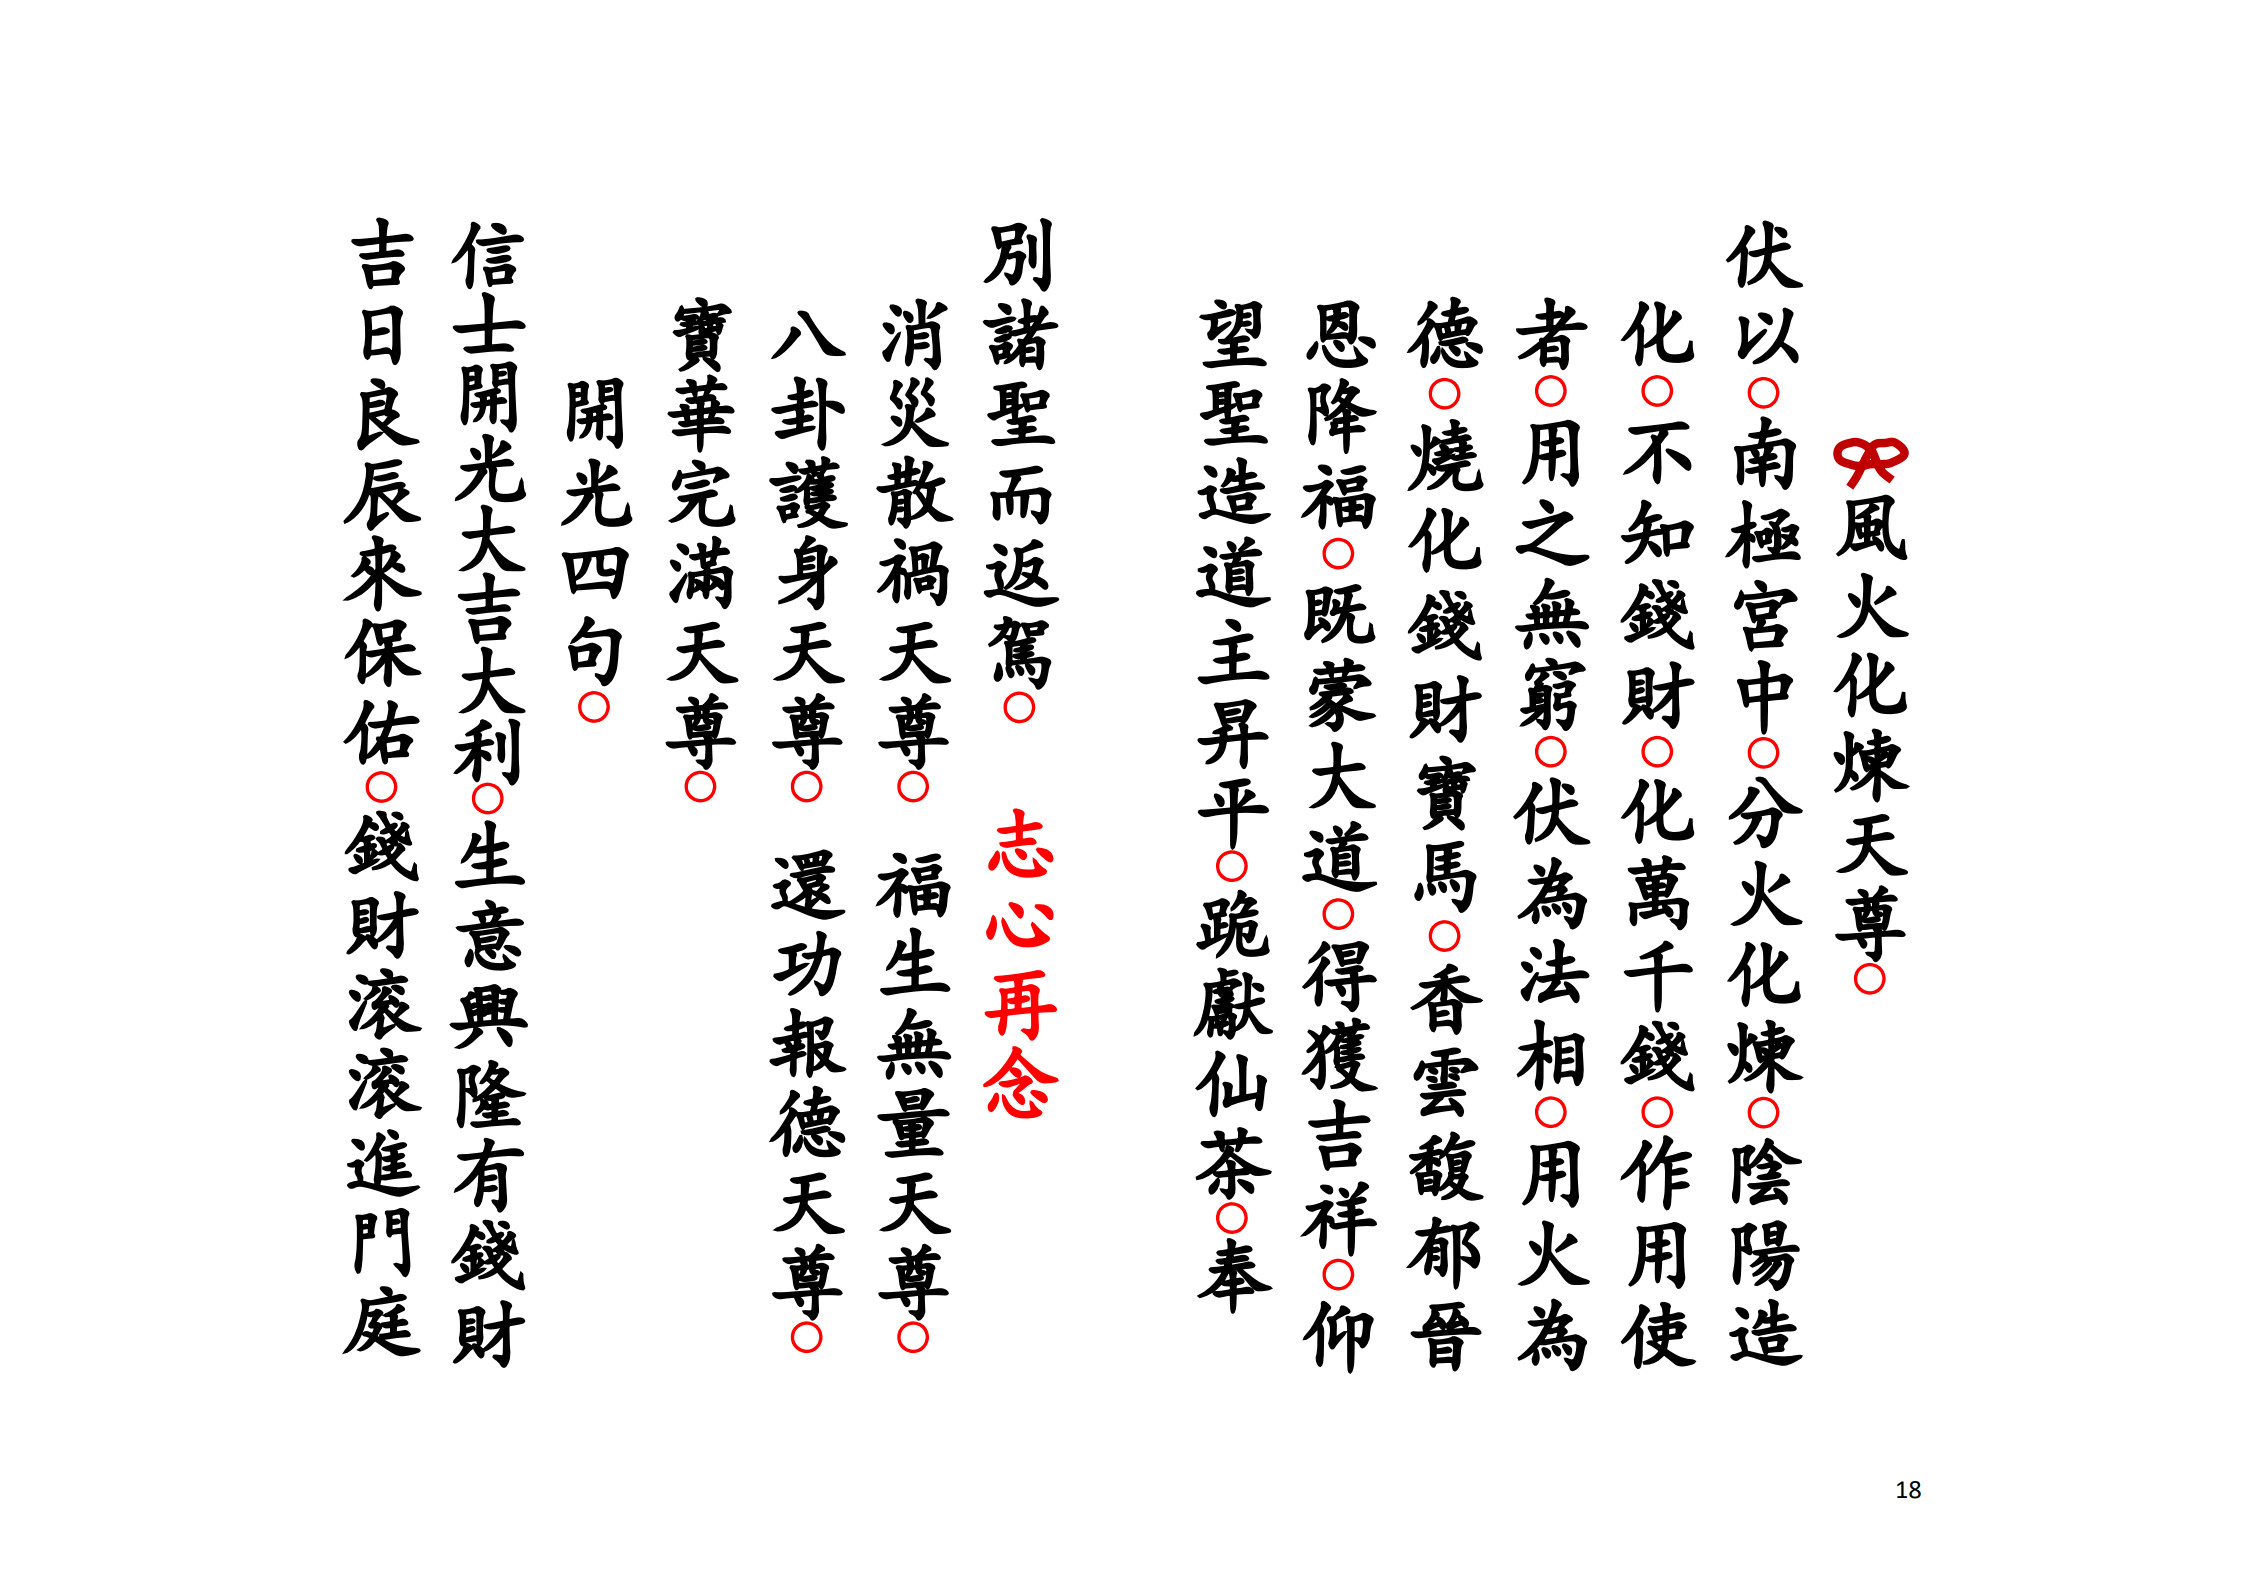 風火化煉天尊○
伏以○南極宮中○分火化煉○陰陽造
化○不知錢財○化萬千錢○作用使
者○用之無窮○伏為法相○用火為
德○燒化錢財寶馬○香雲馥郁晉
恩降福○既蒙大道○得獲吉祥○仰
望聖造道主昇平○跪獻仙茶○奉
別諸聖而返駕○ 志心再念
消災散禍天尊○ 福生無量天尊○
八卦護身天尊○ 還功報德天尊○
寶華完滿天尊○
開光四句○
信士開光大吉大利○生意興隆有錢財
吉日良辰來保佑○錢財滾滾進門庭
18